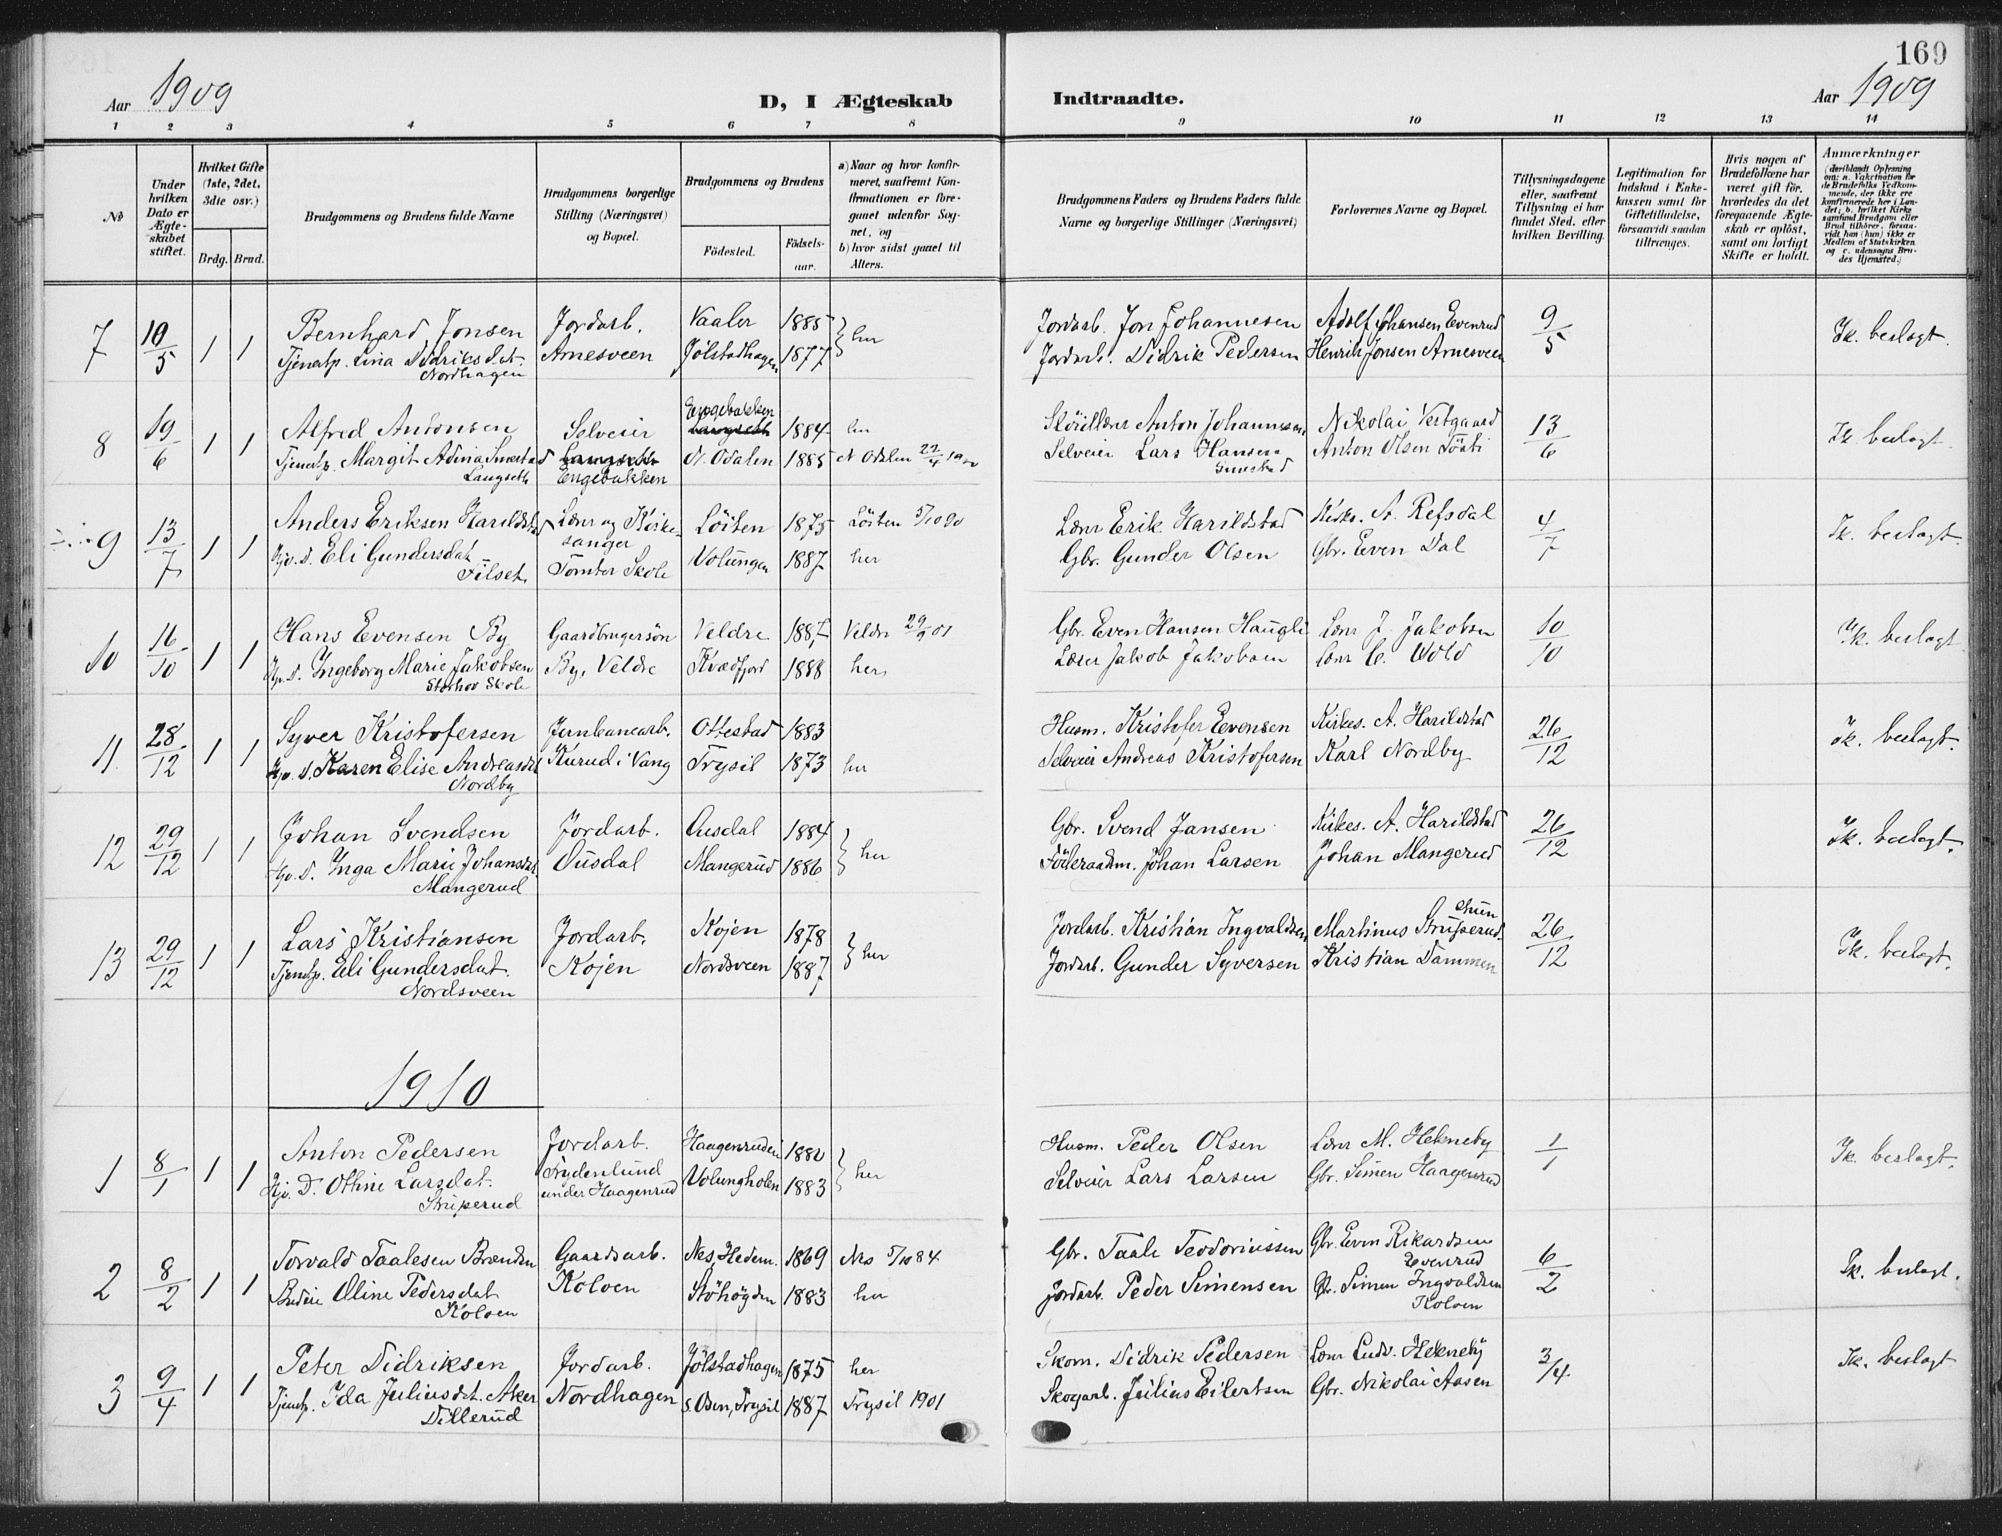 169
Aar 1909
D, I Ægteskab
Indtraadte.
Aar 1909
1 2 3 4 5 6 7 8 9 10 11 12 13 14
No
Under hvilken Dato er Ægteskabet stiftet.
Hvilket Gifte (1ste, 2det, 3die osv.)
Brdg. Brud.
Brudgommens og Brudens fulde Navne
Brudgommens borgerlige Stilling (Næringsvei) og Bopæl.
Brudgommens og Brudens
Födested.
Födselsaar.
a) Naar og hvor konfirmeret, saafremt Konfirmationen er foregaaet udenfor Sognet, og
b) hvor sidst gaaet til Alters.
Brudgommens Faders og Brudens Faders fulde Navne og borgerlige Stillinger (Næringsvei)
Forlovernes Navne og Bopæl.
Tillysningsdagene eller, saafremt Tillysning ei har fundet Sted, efter hvilken Bevilling.
Legitimation for Indskud i Enkekassen samt for Giftetilladelse, forsaavidt saadan tiltrænges.
Hvis nogen af Brudefolkene har været gift för, hvorledes da det foregaaende Ægteskab er oplöst, samt om lovligt Skifte er holdt.
Anmærkninger
(deriblandt Oplysning om: a. Vakcination for de Brudefolks Vedkommende, der ikke ere konfirmerede her i Landet; b. hvilket Kirkesamfund Brudgom eller Brud tilhörer, forsaavidt han (hun) ikke er Medlem af Statskirken og c. udensogns Brudes Hjemsted.)
7 10/5 1 1 Bernhard Jonsen Jordarb. Vaaler 1885 } her Jordarb. Jon Johannesen Adolf Johansen Evenrud 9/5 Ik. beslagt.
Tjenestp. Lina Didriksdat. Arnesveen Jölstadhagen 1877 Jordarb. Didrik Pedersen Henrik Jonsen Arnesveen
Nordhagen
8 19/6 1 1 Alfred Antonsen Selveier Engebakken 1884 her Anton Johannesen Nikolai Vestgaard 13/6 Ik. beslagt.
Tjenestp. Margit Adina Smestad Langseth N. Odalen 1885 N Odalen 22/4 1900 Selveier Lars Hansen Anton Olsen
Langseth Engebakken Smestad
9 13/7 1 1 Anders Eriksen Harildstad Lærer og Kirke- Löiten 1875 Löiten 5/10 90 Lærer Erik Harildstad Kirkes. A. Refsdal 4/7 Ik. beslagt.
sanger
Hjv. D. Eli Gundersdat. Tomter Skole Volungen 1887 her Gbr. Gunder Olsen Gbr. Even Dal
Filset.
10 16/10 1 1 Hans Evensen By Gaardbrugersön Veldre 1887 Veldre 29/9 01 Gbr. Even Hansen Haugli Lærer J. Jakobsen 10/10 Ik. beslagt
Hjv. D. Ingeborg Marie Jakobsen By, Veldre Kvædfjord 1888 her Lærer Jakob Jakobsen Lærer C. Wold
Storhov Skole
11. 28/12 1 1 Syver Kristofersen Jernbanearb. Ottestad 1883 Husm. Kristofer Evensen Kirkes. A. Harildstad 26/12 Ik. beslagt.
Hjv. D. Karen Elise Andreasdat. Kurud i Vang Trysil 1873 her Selveier Andreas Kristofersen Karl Nordby
Nordby
12 29/12 1 1 Johan Svendsen Jordarb. Ousdal 1884 } her Gbr. Svend Jansen Kirkes. A. Harildstad 26/12 Ik. beslagt.
Hjv. D. Inga Marie Johansdat. Ousdal Mangerud 1886 Föderaadsm. Johan Larsen Johan Mangerud
Mangerud
13 29/12 1 1 Lars Kristiansen Jordarb. Kojen 1878 } her Jordarb. Kristian Ingvaldsen Martinus Struperud 26/12 Ik. beslagt.
Tjenestp. Eli Gundersdat. Kojen Nordsveen 1887 Jordarb. Gunder Syversen Kristian Dammen
Nordsveen
1910
1 8/1 1 1 Anton Pedersen Jordarb. Haagenruden 1882 } her Husm. Peder Olsen Lærer M. Hekneby 1/1 Ik. beslagt.
Hjv. D. Othine Larsdat. Frydenlund Volungholen 1883 Selveier Lars Larsen Gbr. Simen Haagenrud
Struperud under Haagenrud
2 8/2 1 1 Torvald Taalesen Brænden Gaardsarb. Nes, Hedem. 1869 Nes 5/10 84 Gbr. Taale Teodoriussen Gbr. Even Rikardsen 6/2 Ik. beslagt.
Evenrud
Budeie Oline Pedersdat. Koloen Stöhögden 1883 her Jordarb. Peder Simensen Gbr. Simen Ingvaldsen
Koloen Koloen
3 9/4 1 1 Peter Didriksen Jordarb. Jölstadhagen 1875 her Skom. Didrik Pedersen Lærer Ludv. Hekneby 3/4 Ik. beslagt
Tjenestp. Ida Juliusdat. Aker Nordhagen S. Osen, Trysil 1887 Trysil 1901 Skogarb. Julius Eilertsen Gbr. Nikolai Aasen
Dillerud